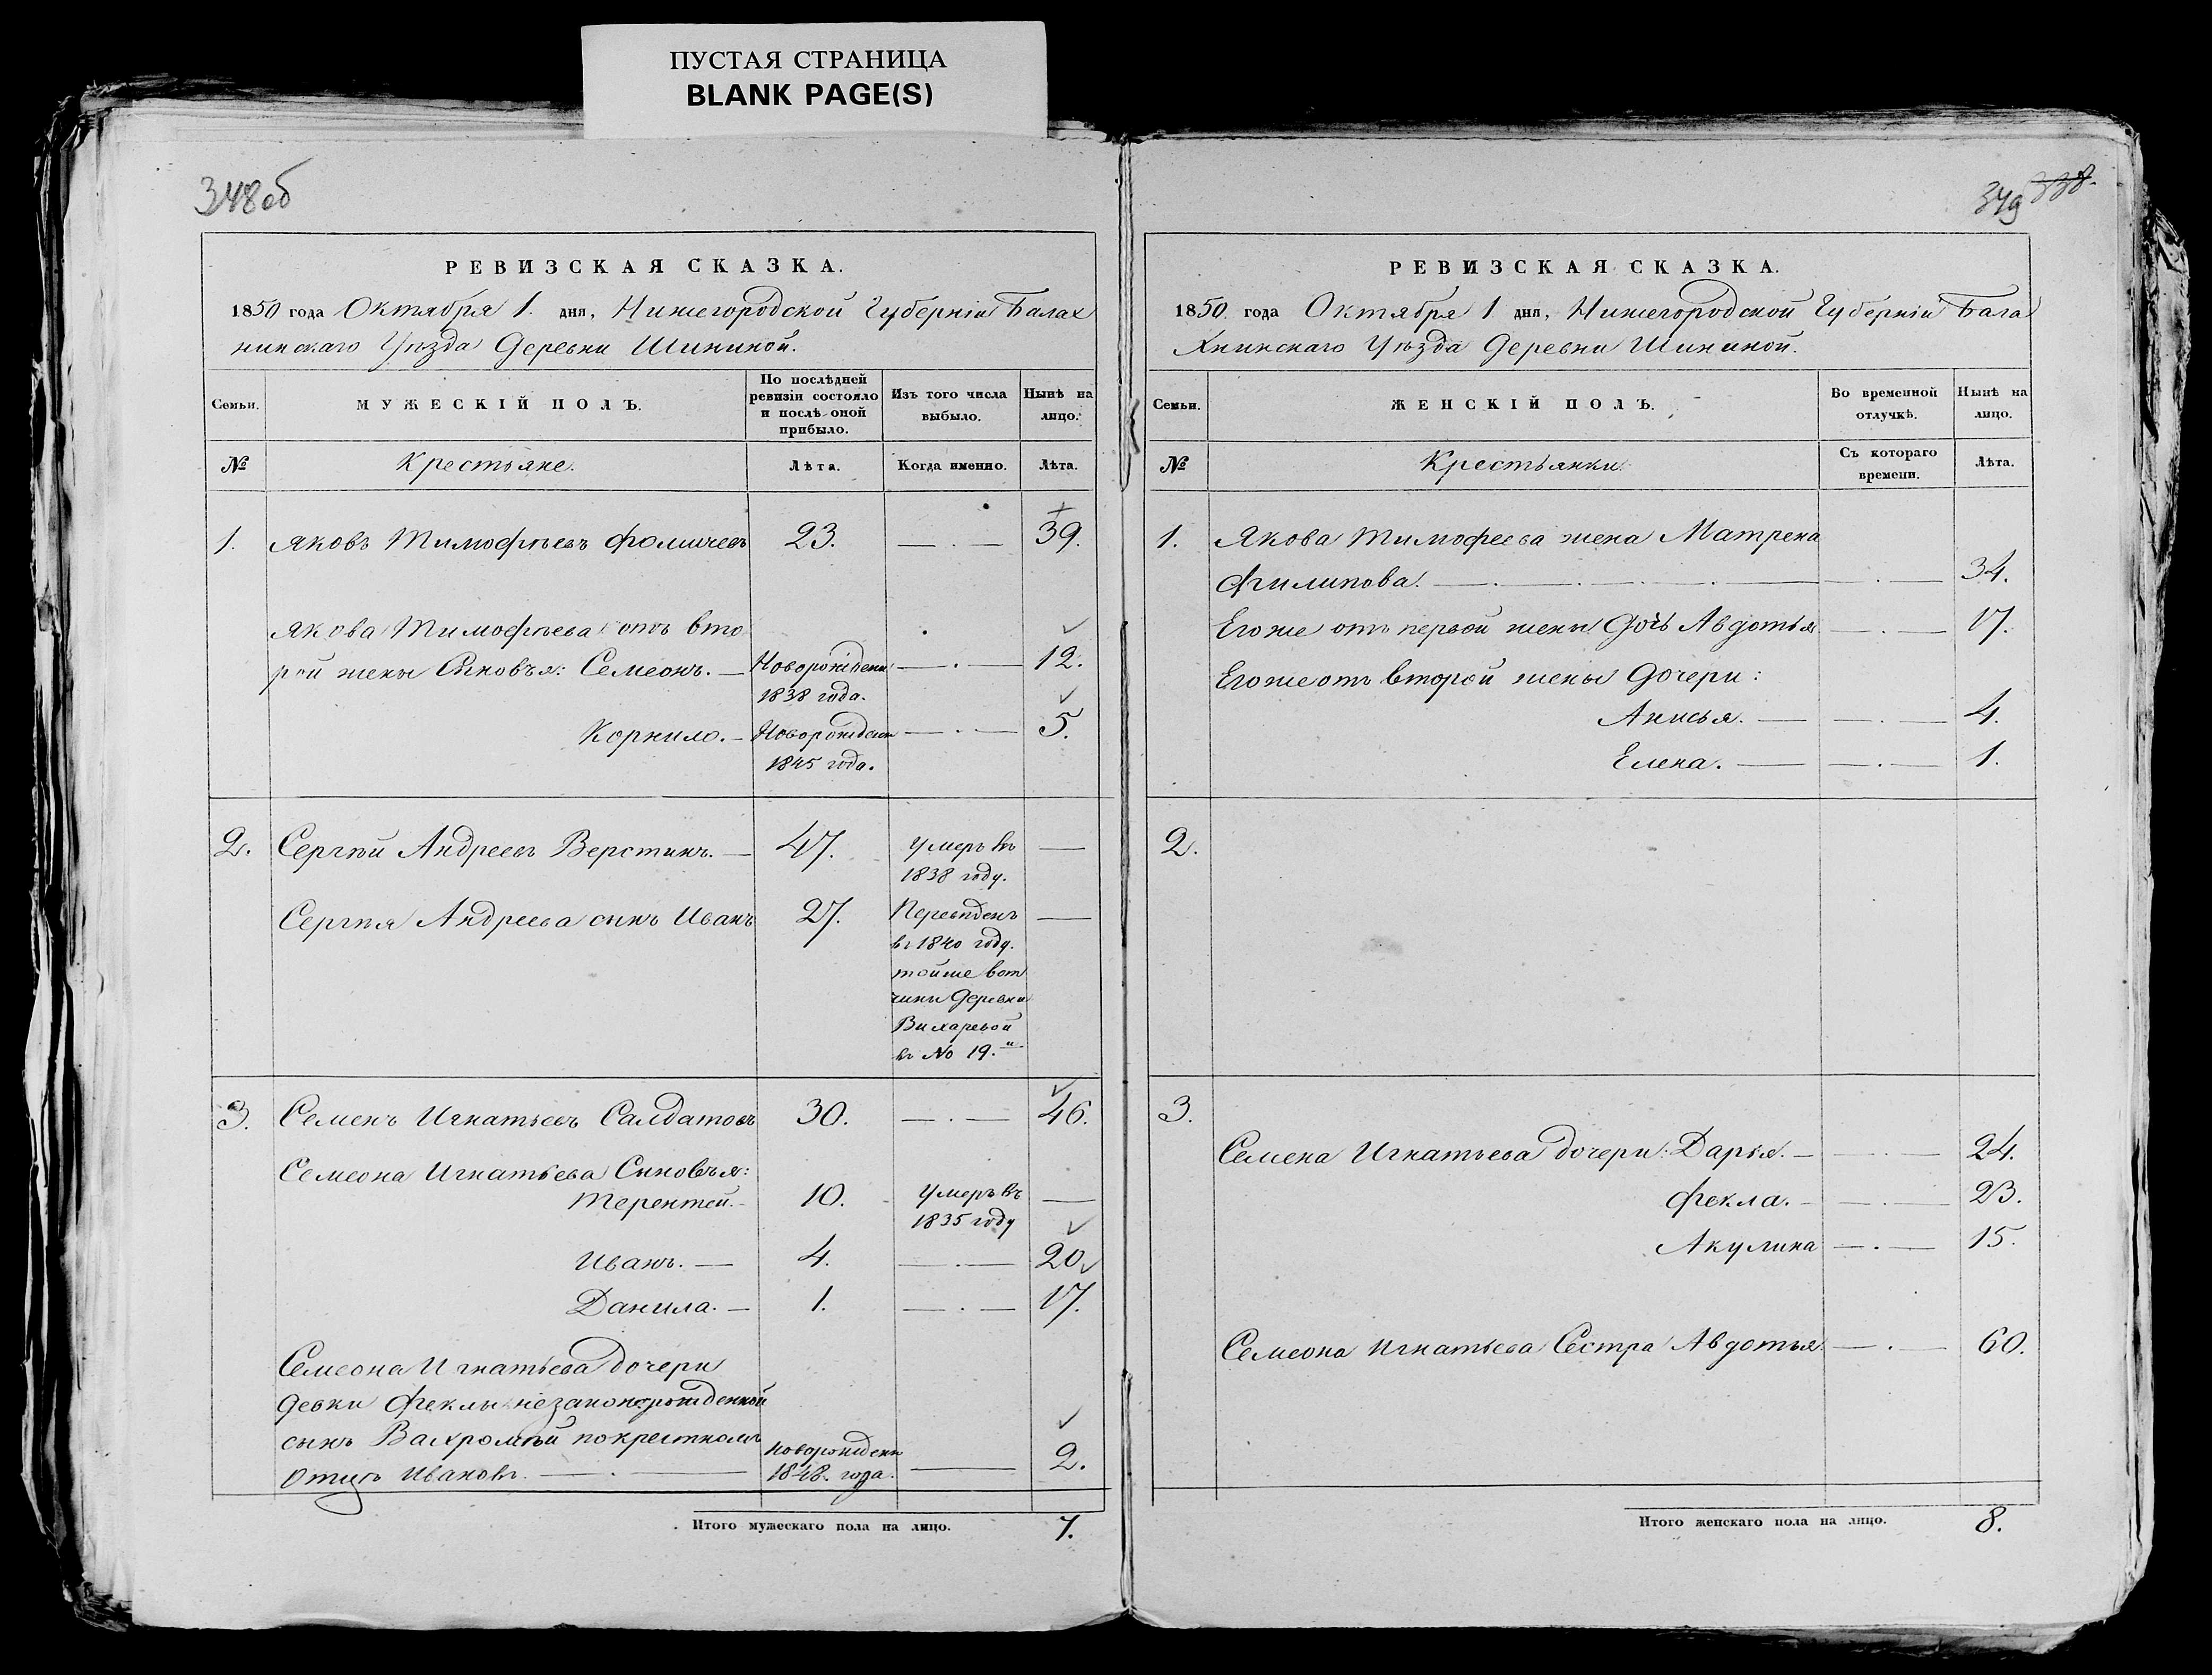 ПУСТАЯ СТРАНИЦА
BLANK PAGE(S)
348об
РЕВИЗСКАЯ СКАЗКА.
1850 года Октября 1. дня, Нижегородской Губерніи Балах
нинскаго Уѣзда Деревни Шининой.
Семьи. МУЖЕСКІЙ ПОЛЪ. По послѣдней ревизіи состояло и послѣ оной прибыло. Изъ того числа выбыло. Нынѣ на лицо.
№ Крестьяне. Лѣта. Когда именно. Лѣта.
1. Яковъ Тимофѣевъ Фомичевъ 23. — . — 39.
Якова Тимофѣева отъ вто
рой жены Сыновья: Семеонъ. — Новорожденъ — . — 12.
1838 года.
Корнило. — Новорожденъ — . — 5.
1845 года.
2. Сергѣй Андреевъ Верстинъ. — 47. Умеръ въ —
1838 году.
Сергѣя Андреева сынъ Иванъ 27. Переведенъ —
въ 1840 году.
тойже вот
чины Деревни
Вихаревой
въ № 19.
3. Семенъ Игнатьевъ Салдатовъ 30. — . — 46.
Семеона Игнатьева Сыновья:
Терентей. - 10. Умеръ въ —
1835 году
Иванъ. — 4. — . — 20.
Данила. — 1. — . — 17.
Семеона Игнатьева дочери
девки Феклы незаконорожденной
сынъ Вахромѣй покрестному
Отцу Ивановъ. — . — Новорожденъ — 2.
1848. года.
Итого мужескаго пола на лицо. 7.
349 338.
РЕВИЗСКАЯ СКАЗКА.
1850. года Октября 1 дня, Нижегородской Губерніи Бала
хнинскаго Уѣзда Деревни Шининой.
Семьи. ЖЕНСКІЙ ПОЛЪ. Во временной отлучкѣ. Нынѣ на лицо.
№ Крестьянки. Съ котораго времени. Лѣта.
1. Якова Тимофеева жена Матрена
Филипова. — . — . — . — . — — . — 34.
Егоже отъ первой жены дочь Авдотья — . — 17.
Егоже отъ второй жены Дочери:
Анисья. — — . — 4.
Елена. — — . — 1.
2.
3.
Семена Игнатьева дочери: Дарья. — — . — 24.
Фекла. - — . — 23.
Акулина — . — 15.
Семеона Игнатьева Сестра Авдотья — . — 60.
Итого женскаго пола на лицо. 8.